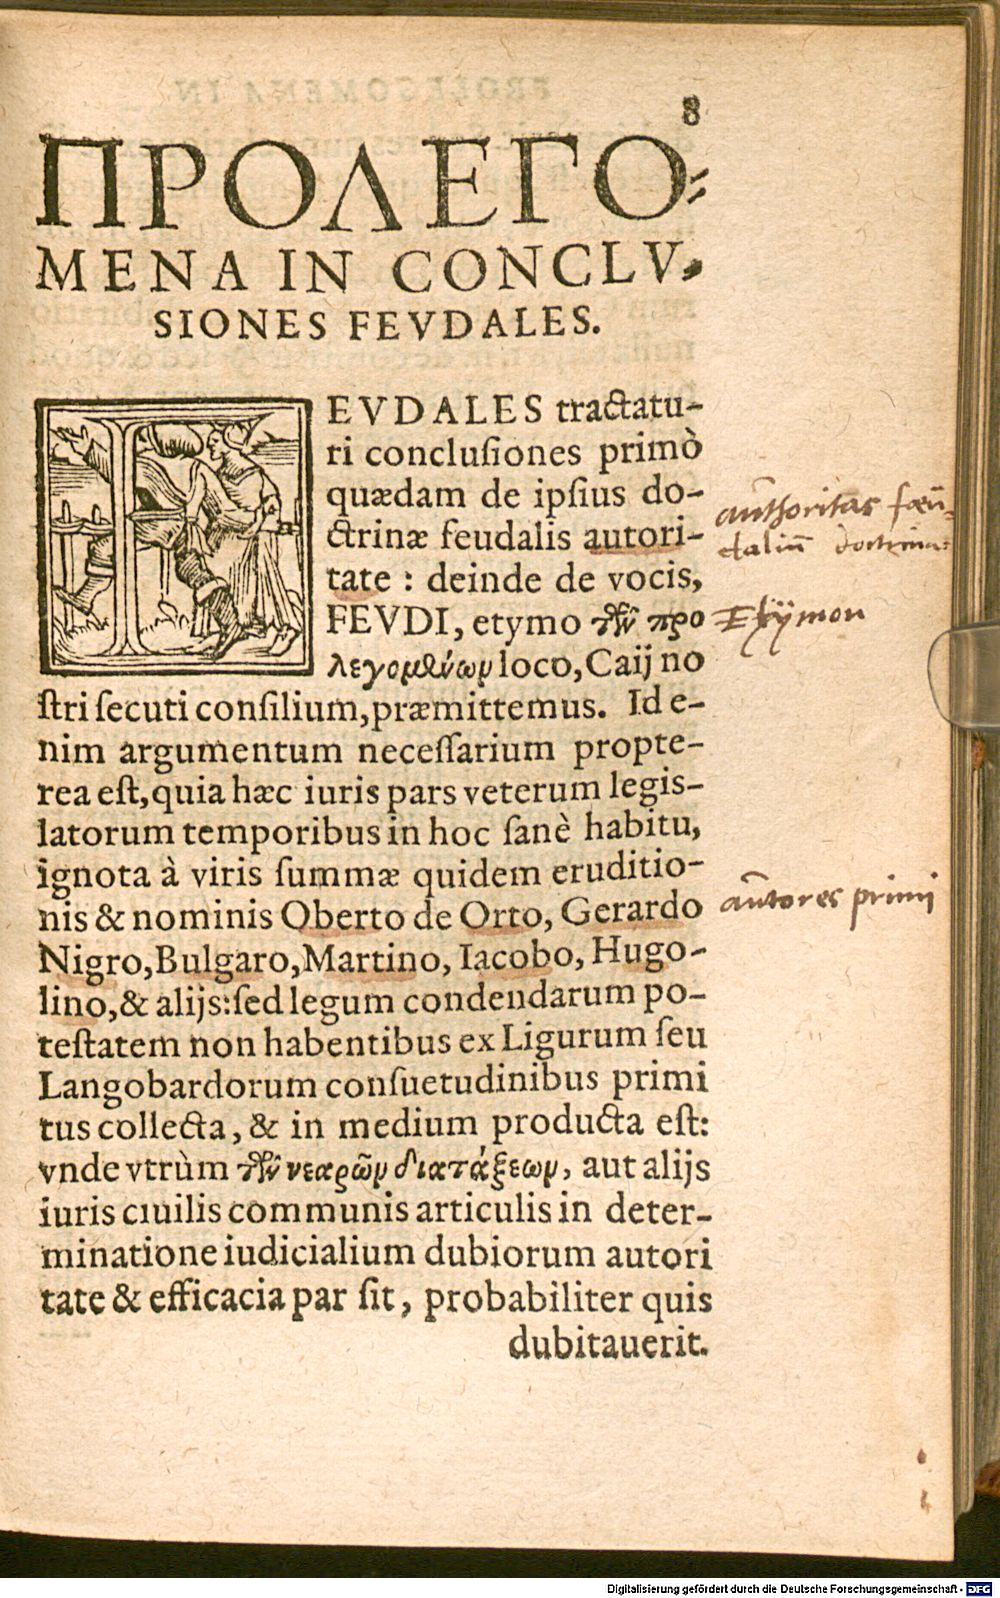 8
ΠΡΟΛΕΓΟ⸗
MENA IN CONCLV⸗
SIONES FEVDALES.
FEVDALES tractatu-
ri conclusiones primò
quædam de ipsius do-
ctrinæ feudalis autori-
tate : deinde de vocis,
FEVDI, etymo τῶν προ
λεγομένων loco, Caij no
stri secuti consilium, præmittemus. Id e-
nim argumentum necessarium propte-
rea est, quia hæc iuris pars veterum legis-
latorum temporibus in hoc sanè habitu,
ignota à viris summæ quidem eruditio-
nis & nominis Oberto de Orto, Gerardo
Nigro, Bulgaro, Martino, Iacobo, Hugo-
lino, & alijs: sed legum condendarum po-
testatem non habentibus ex Ligurum seu
Langobardorum consuetudinibus primi
tus collecta, & in medium producta est:
vnde vtrùm τῶν νεαρῶν διατάξεων, aut alijs
iuris ciuilis communis articulis in deter-
minatione iudicialium dubiorum autori
tate & efficacia par sit, probabiliter quis
dubitauerit.
authoritas fœu-
daliū doctrinæ
Etÿmon
autores primi
Digitalisierung gefördert durch die Deutsche Forschungsgemeinschaft - DFG